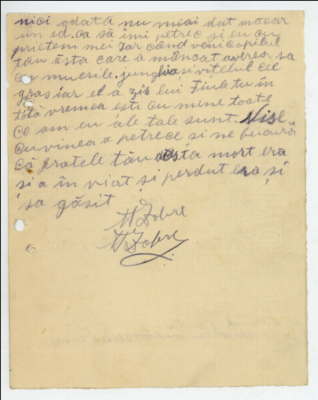 nici odată nu miai dat măcar
un ed. ca să îmi petrec și eu cu
prietenii mei Iar când veni copilul
tău ăsta care a mâncat averea sa
cu muerile, junghiași vitelul cel
gras iar el a zis lui Fiule tu în
tótă vremea ești cu mine toate
ce am eu ale tale sunt. Nise
cuvinea a petrece si ne bucura
că fratele tău acesta mort era
si a în viat și perdut era și
sa găsit
H Zobre
H Zobre